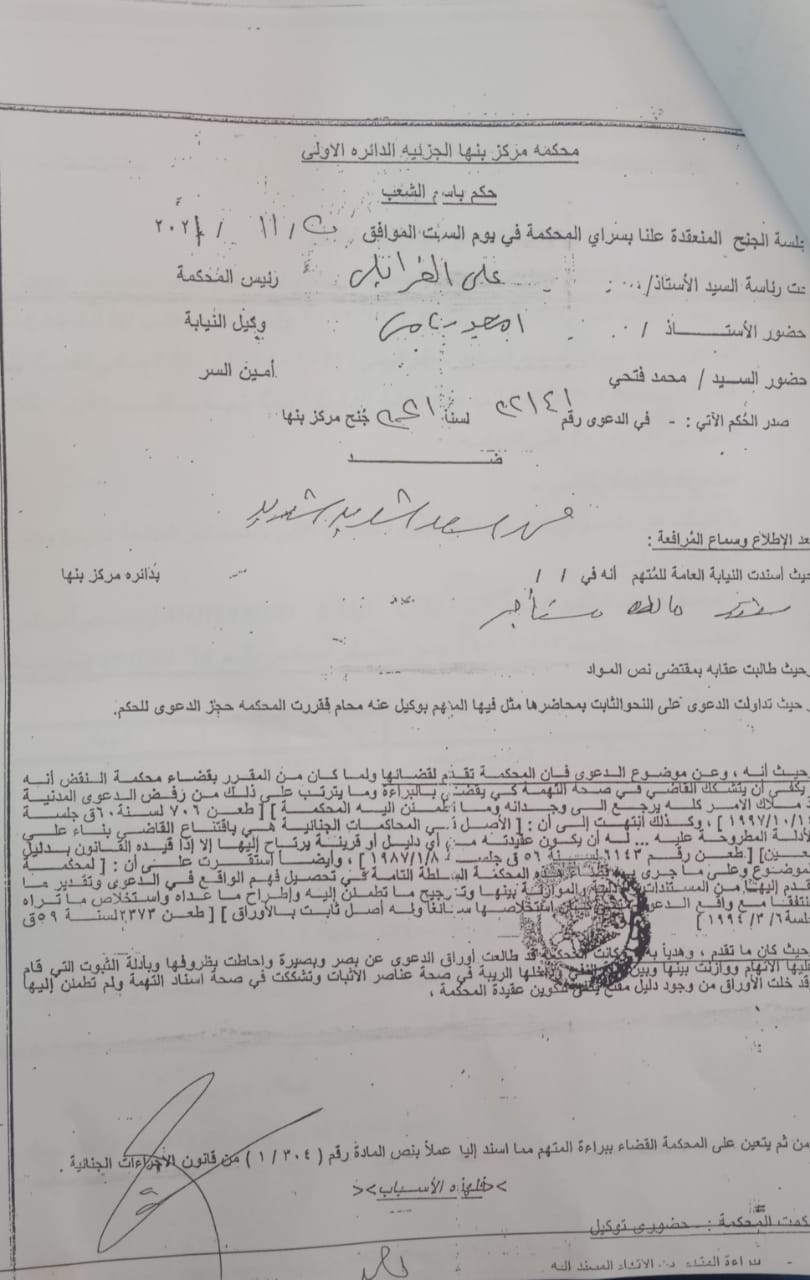 محكمه مركز بنها الجزئيه الدائره الاولى
حكم باسم الشعب
جلسة الجنح المنعقدة علنا بسراي المحكمة في يوم السبت الموافق / ١١ / ٢٠٢١
تحت رئاسة السيد الأستاذ/ على رئيس المحكمة
حضور الأستــــــاذ / وكيل النيابة
حضور السيد / محمد فتحي أمين السر
صدر الحُكم الآتي : - في الدعوى رقم ٢٢١٤١ لسنة جُنح مركز بنها
ضـــــــــد
بعد الإطلاع وسماع المُرافعة :
حيث أسندت النيابة العامة للمُتهم أنه في / / بدائره مركز بنها
مالك مستأجر
وحيث طالبت عقابه بمقتضى نص المواد
و حيث تداولت الدعوى على النحو الثابت بمحاضرها مثل فيها المتهم بوكيل عنه محام فقررت المحكمه حجز الدعوى للحكم.
وحيث أنه ، وعن موضوع الدعوى فان المحكمة تقدم لقضائها ولما كان من المقرر بقضاء محكمة النقض أنه
يكفي أن يتشكك القاضي في صحة التهمة كي يقضي بالبراءة وما يترتب على ذلك من رفض الدعوى المدنية
ملاك الأمر كله يرجع إلى وجدانه وما تطمئن اليه المحكمة ] [ طعن ٧٠٦ لسنة ٦٠ق جلسة
١٩٩٧/١٠/١ ] ، وكذلك انتهت إلى أن : [ الأصل في المحاكمات الجنائية هي باقتناع القاضي بناء على
الأدلة المطروحة عليه ... له أن يكون عقيدته من أي دليل أو قرينة يرتاح إليها إلا إذا قيده القانون بدليل
معين] [ طعن رقم ٦١٤٣ لسنة ٥٦ ق جلسة ١٩٨٧/١/٨ ] ، وأيضا استقرت على أن : [ لمحكمة
الموضوع وعلى ما جرى به قضاء هذه المحكمة السلطة التامة في تحصيل فهم الواقع في الدعوى وتقدير ما
يقدم إليها من المستندات والأدلة والموازنة بينها وترجيح ما تطمئن إليه وإطراح ما عداه واستخلاص ما تراه
متفقا مع واقع الدعوى استخلاصها سائغا وله أصل ثابت بالأوراق ] [ طعن ٢٣٧٣ لسنة ٥٩ق
جلسة ١٩٩٤/٣/٦ ]
وحيث كان ما تقدم ، وهدياً به وكانت المحكمة قد طالعت أوراق الدعوى عن بصر وبصيرة وأحاطت بظروفها وبأدلة الثبوت التي قام
عليها الاتهام ووازنت بينها وبين النفي داخلها الريبة في صحة عناصر الأثبات وتشككت في صحة اسناد التهمة ولم تطمئن إليها
وقد خلت الأوراق من وجود دليل مقنع يكفي لتكوين عقيدة المحكمة ،
من ثم يتعين على المحكمة القضاء ببراءة المتهم مما اسند إليا عملاً بنص المادة رقم ( ٣٠٤ / ١ ) من قانون الإجراءات الجنائية .
<<فلهذه الأسباب>>
حكمت المحكمة :- حضوري توكيل
- براءة المتهم من الاتهام المسند اليه